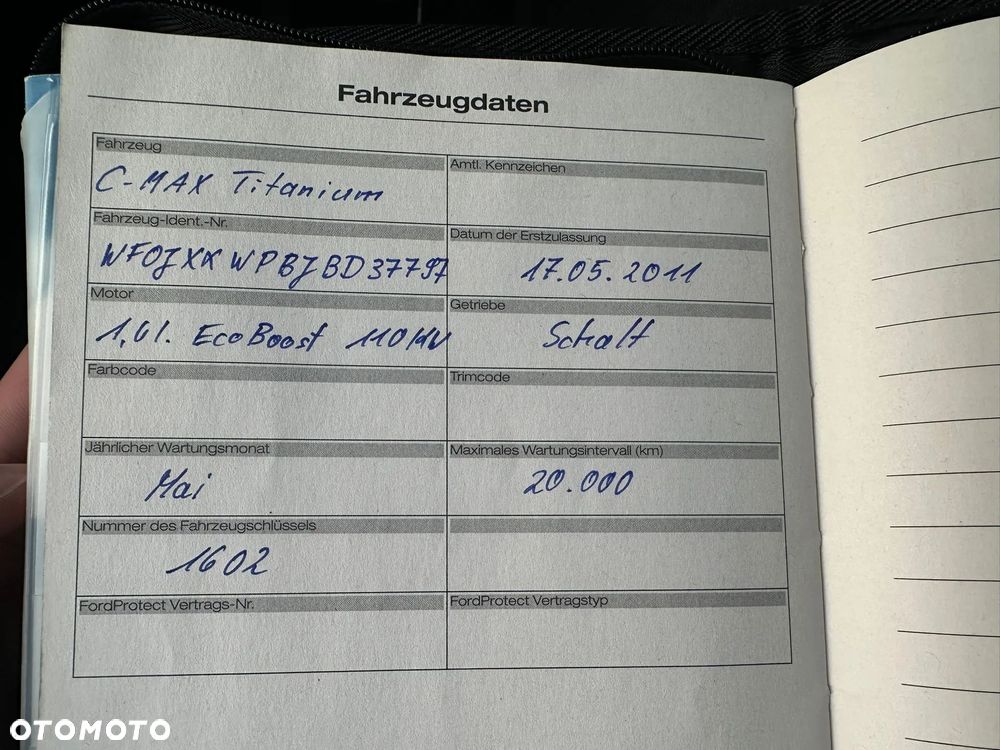 Fahrzeugdaten
Fahrzeug
Amtl. Kennzeichen
C-MAX Titanium
Fahrzeug-Ident.-Nr.
Datum der Erstzulassung
WFOJXXWPBJBD37797
17.05.2011
Motor
Getriebe
1,6l. EcoBoost 110KW
Schalt
Farbcode
Trimcode
Jährlicher Wartungsmonat
Maximales Wartungsintervall (km)
Mai
20.000
Nummer des Fahrzeugschlüssels
1602
FordProtect Vertrags-Nr.
FordProtect Vertragstyp
OTOMOTO